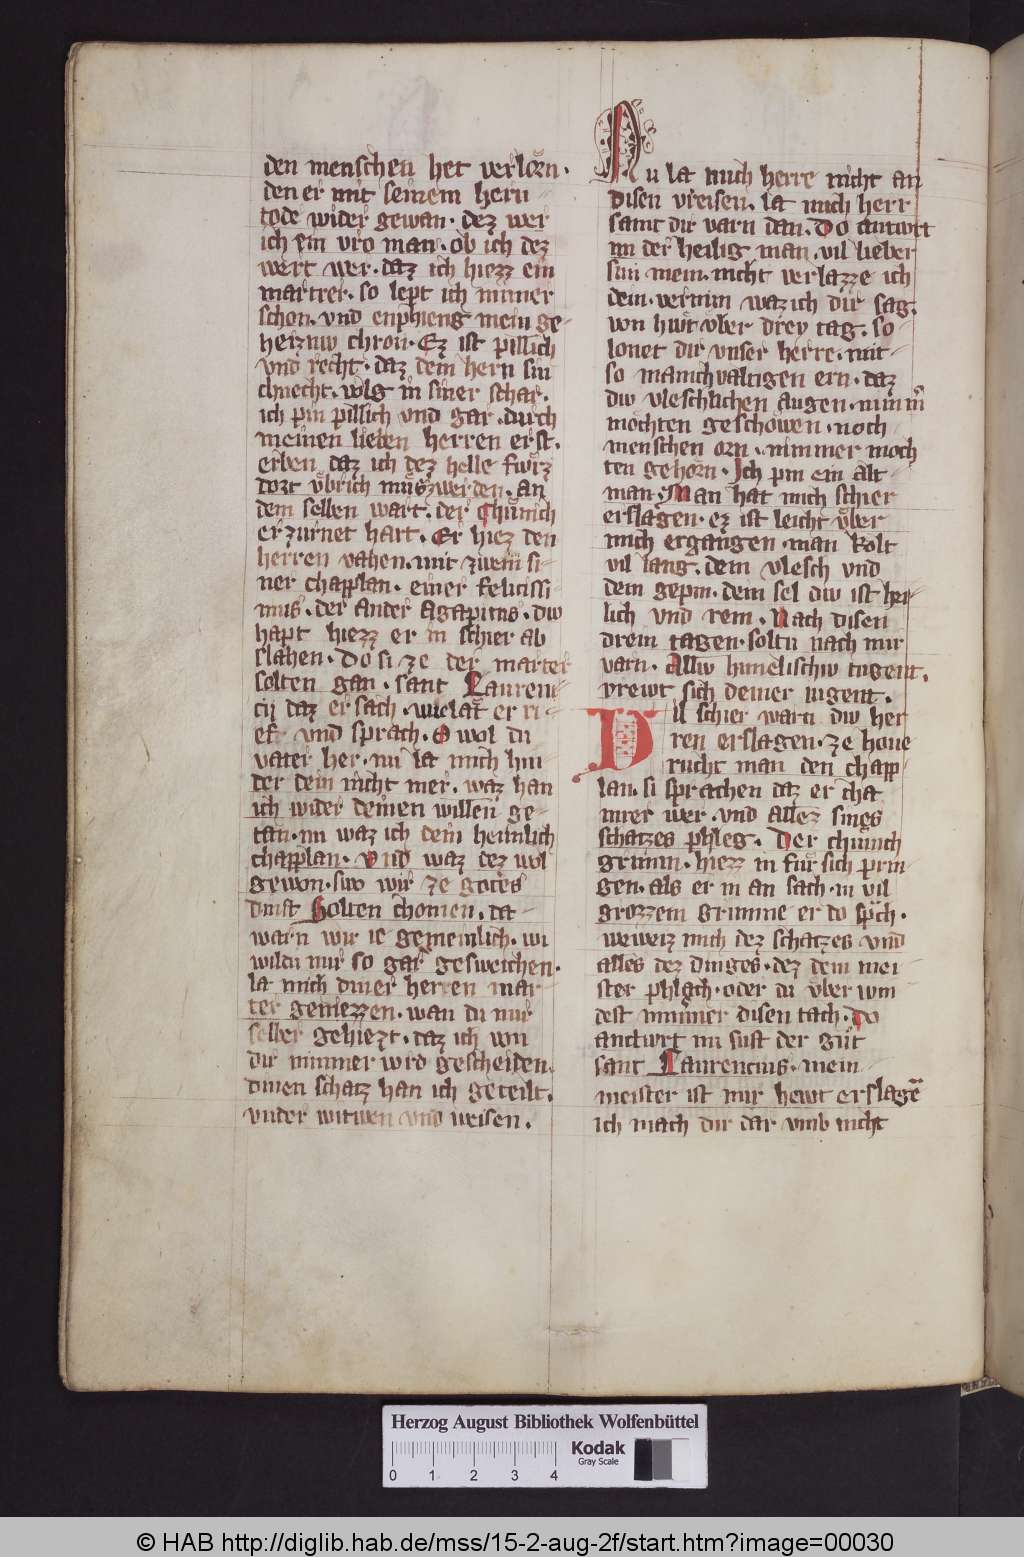 den menschen het verlorn·
den er mit seinem hern
tode wider gewan· dez wer
ich ein vro man· ob ich dez
wert wer· daz ich hiezz ein
martrer· so lept ich immer
schon· vnd enphieng mein ge-
heizuw chron· Ez ist pillich
vnd recht· daz dem hern sin
chnecht· volg in siner schar·
ich pin pillich vnd gar· durch
meinen lieben herren erst·
erben daz ich dez helle fwrz
dort vbrich muͤs werden· an
dem selben wart· der Chuͤnich
erzurnet hart· Er hiez den
herren vahen· mit zwein si-
ner chapplan· einer felicissi-
mus· der ander Agapitus· diw
hapt hiezz er in schier ab
slahen· Do si ze der marter
solten gan· sant Laurenc-
cij daz ersach· wielaͤt er ri-
ef· vnd sprach· O wol du
vater her· nu la mich hin
der dein nicht mer· waz han
ich wider deinen willen ge-
tan· nu waz ich dein heimlich
chapplan· Vnd waz dez wol
gewon· swo wir ze gotes
dinst Solten chomen· da-
warn wir ie gemeinlich· wi
wildu mir so gar gesweichen·
la mich diner herren mar-
ter geniezzen· wan du mir
selber gehiezt· daz ich von
dir nimmer wird gescheiden·
dinen schatz han ich geteilt·
vnder witwen vnd weisen·
Nu la mich herre nicht an
disen vreisen· la mich herr
samt dir varn dan· Do antwrt
im der heilig man· vil lieber
sun mein· nicht verlazze ich
dein· vernim waz ich dir sag·
von hwt vͤber drey tag· so-
lonet dir vnser herre· mit-
so manichvaltigen ern· daz
diw vleschlichen augen· nimmͬ
mochten geschowen· noch-
menschen orn· nimmer moch
ten gehorn· Ich pin ein alt-
man· Man hat mich schier
erslagen· ez ist leicht vͤber
mich ergangen· man kolt
vil lang· dem vlesch vnd
dem gepin· dem sel diw ist her-
lich vnd rein· Nach disen
drein tagen· soltu nach mir
varn· Alliw himelischiw tugent·
vrewt sich deiner iugent·
Vil schier warn diw her
ren erslagen· ze houe
rucht man den chapp-
lan· si sprachen daz er cha
mrer wer· vnd allez sines
schatzes phleg· Der chuͤnich
grimm· hiezz in fuͤr sich prin-
gen· als er in an sach· in vil
grozzem grimme er do sprͣch·
weweiz mich dez schatzes vnd
alles dez dinges· dez dein mei-
ster phlach· oder du vber win
dest nimmer disen tach· Do
antwrt im sust der guͤt
sant Laurencius· mein-
meister ist mir hewt erslagē
ich mach dir dar vmb nicht
Herzog August Bibliothek Wolfenbüttel
Kodak
Gray Scale
0 1 2 3 4
© HAB http://diglib.hab.de/mss/15-2-aug-2f/start.htm?image=00030